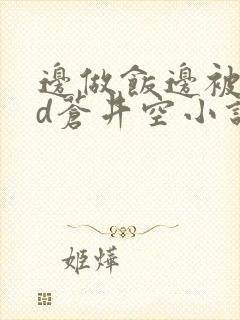 邊做飯邊被
d蒼井空小說
姬燁